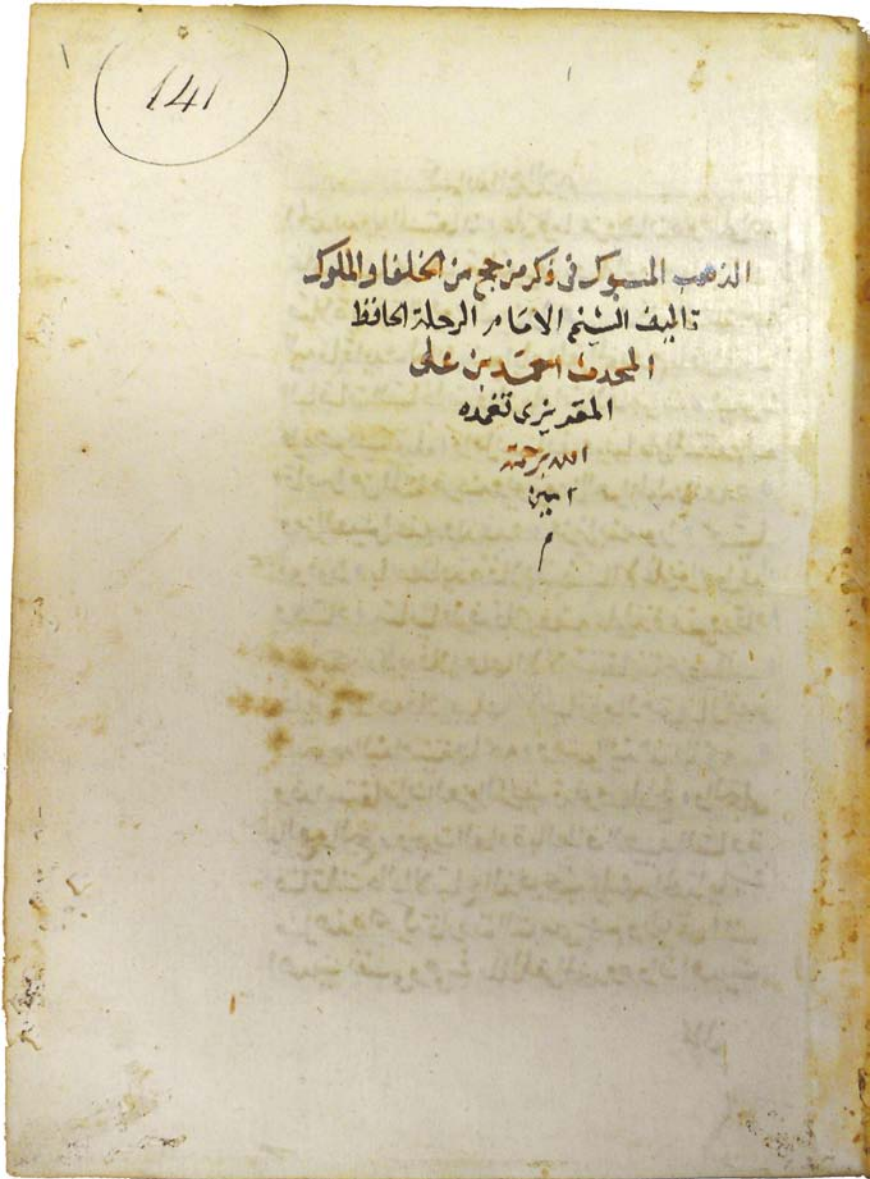 141
الذهب المسبوك فى ذكر من حج من الخلفا والملوك
تاليف الشيخ الامام الرحلة الحافظ
المحدث احمد بن على
المقريزى تغمده
الله برحمته
امين
م